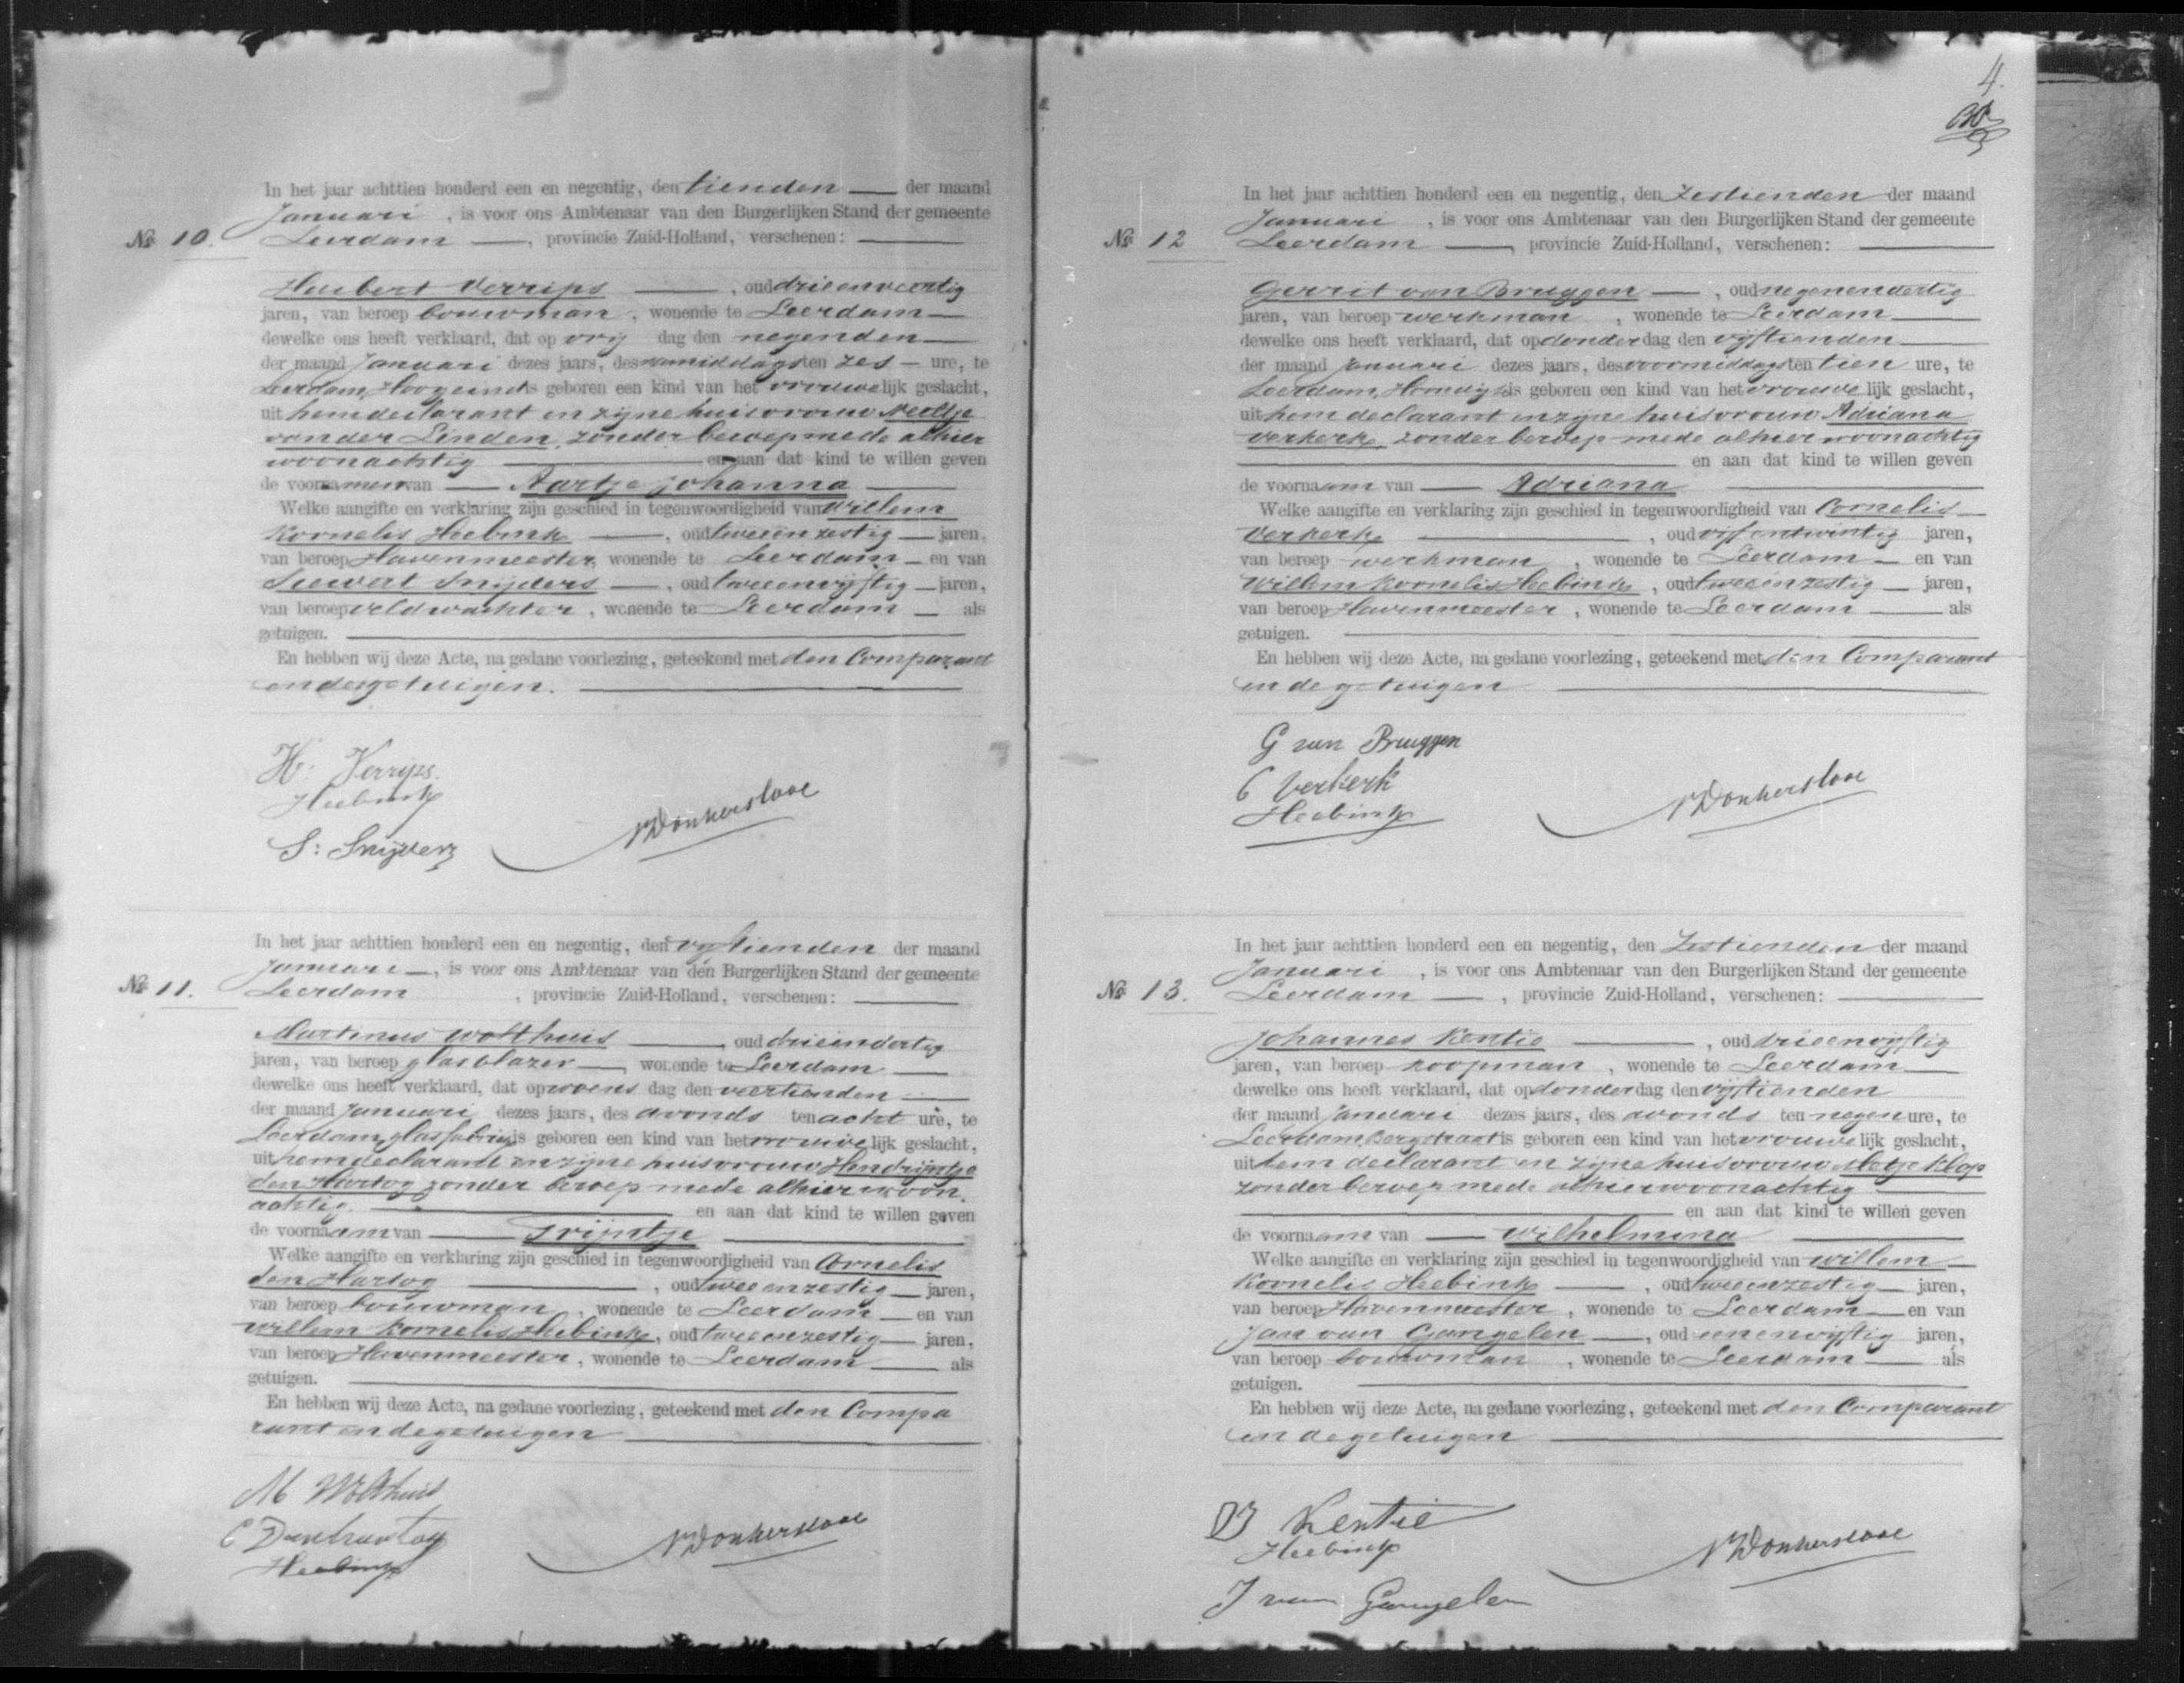 In het jaar achttien honderd een en negentig, den tienden der maand
Januari, is voor ons Ambtenaar van den Burgerlijken Stand der gemeente
No 10. Leerdam, provincie Zuid-Holland, verschenen:
Huibert Verrips, oud drieenveertig
jaren, van beroep bouwman, wonende te Leerdam
dewelke ons heeft verklaard, dat op vrij dag den negenden
der maand Januari dezes jaars, des namiddags ten zes ure, te
Leerdam, Hoogeind is geboren een kind van het vrouwelijk geslacht,
uit hem declarant en zijne huisvrouw Neeltje
van der Linden, zonder beroep mede alhier
woonachtig en aan dat kind te willen geven
de voornamen van Aartje Johanna
Welke aangifte en verklaring zijn geschied in tegenwoordigheid van Willem
Kornelis Heebink, oud tweeenzestig jaren,
van beroep Havenmeester, wonende te Leerdam en van
Siewert Snijders, oud tweeenvijftig jaren,
van beroep veldwachter, wonende te Leerdam als
getuigen.
En hebben wij deze Acte, na gedane voorlezing, geteekend met den Comparant
en de getuigen.
H: Verrips.
Heebink
S: Snijders
Donkersloot
In het jaar achttien honderd een en negentig, den vijftienden der maand
Januari, is voor ons Ambtenaar van den Burgerlijken Stand der gemeente
No 11. Leerdam, provincie Zuid-Holland, verschenen:
Martinus Wolthuis, oud drieendertig
jaren, van beroep glasblazer, wonende te Leerdam
dewelke ons heeft verklaard, dat op woens dag den veertienden
der maand Januari dezes jaars, des avonds ten acht ure, te
Leerdam, glasfabriek is geboren een kind van het vrouwelijk geslacht,
uit hem declarant en zijne huisvrouw Hendrijntje
den Hartog zonder beroep mede alhier woon
achtig. en aan dat kind te willen geven
de voornaam van Trijntje
Welke aangifte en verklaring zijn geschied in tegenwoordigheid van Cornelis
den Hartog, oud tweeenzestig jaren,
van beroep bouwman, wonende te Leerdam en van
Willem Kornelis Heebink, oud tweeenzestig jaren,
van beroep Havenmeester, wonende te Leerdam als
getuigen.
En hebben wij deze Acte, na gedane voorlezing, geteekend met den Compa
rant en de getuigen
M Wolthuis
C Den hartog
Heebink
Donkersloot
4.
In het jaar achttien honderd een en negentig, den zestienden der maand
Januari, is voor ons Ambtenaar van den Burgerlijken Stand der gemeente
No 12 Leerdam, provincie Zuid-Holland, verschenen:
Gerrit van Bruggen, oud negenendertig
jaren, van beroep werkman, wonende te Leerdam
dewelke ons heeft verklaard, dat op donderdag den vijftienden
der maand Januari dezes jaars, des voormiddags ten tien ure, te
Leerdam, is geboren een kind van het vrouwelijk geslacht,
uit hem declarant en zijne huisvrouw Adriana
Verkerk, zonder beroep mede alhier woonachtig
en aan dat kind te willen geven
de voornaam van Adriana
Welke aangifte en verklaring zijn geschied in tegenwoordigheid van Cornelis
Verkerk, oud vijfentwintig jaren,
van beroep werkman, wonende te Leerdam en van
Willem Kornelis Heebink, oud tweeenzestig jaren,
van beroep Havenmeester, wonende te Leerdam als
getuigen.
En hebben wij deze Acte, na gedane voorlezing, geteekend met den Comparant
en de getuigen
G van Bruggen
C Verkerk
Heebink
Donkersloot
In het jaar achttien honderd een en negentig, den Zestienden der maand
Januari, is voor ons Ambtenaar van den Burgerlijken Stand der gemeente
No 13. Leerdam, provincie Zuid-Holland, verschenen:
Johannes Kentie, oud drieenvijftig
jaren, van beroep koopman, wonende te Leerdam
dewelke ons heeft verklaard, dat op donderdag den vijftienden
der maand Januari dezes jaars, des avonds ten negen ure, te
Leerdam Bergstraat is geboren een kind van het vrouwelijk geslacht,
uit hem declarant en zijne huisvrouw Metje Klop
zonder beroep mede alhier woonachtig
en aan dat kind te willen geven
de voornaam van Wilhelmina
Welke aangifte en verklaring zijn geschied in tegenwoordigheid van Willem
Kornelis Heebink, oud tweeenzestig jaren,
van beroep Havenmeester, wonende te Leerdam en van
Jan van Gangelen, oud eenenvijftig jaren,
van beroep bouwman, wonende te Leerdam als
getuigen.
En hebben wij deze Acte, na gedane voorlezing, geteekend met den Comparant
en de getuigen
Kentie
Heebink
J van Gangelen
Donkersloot